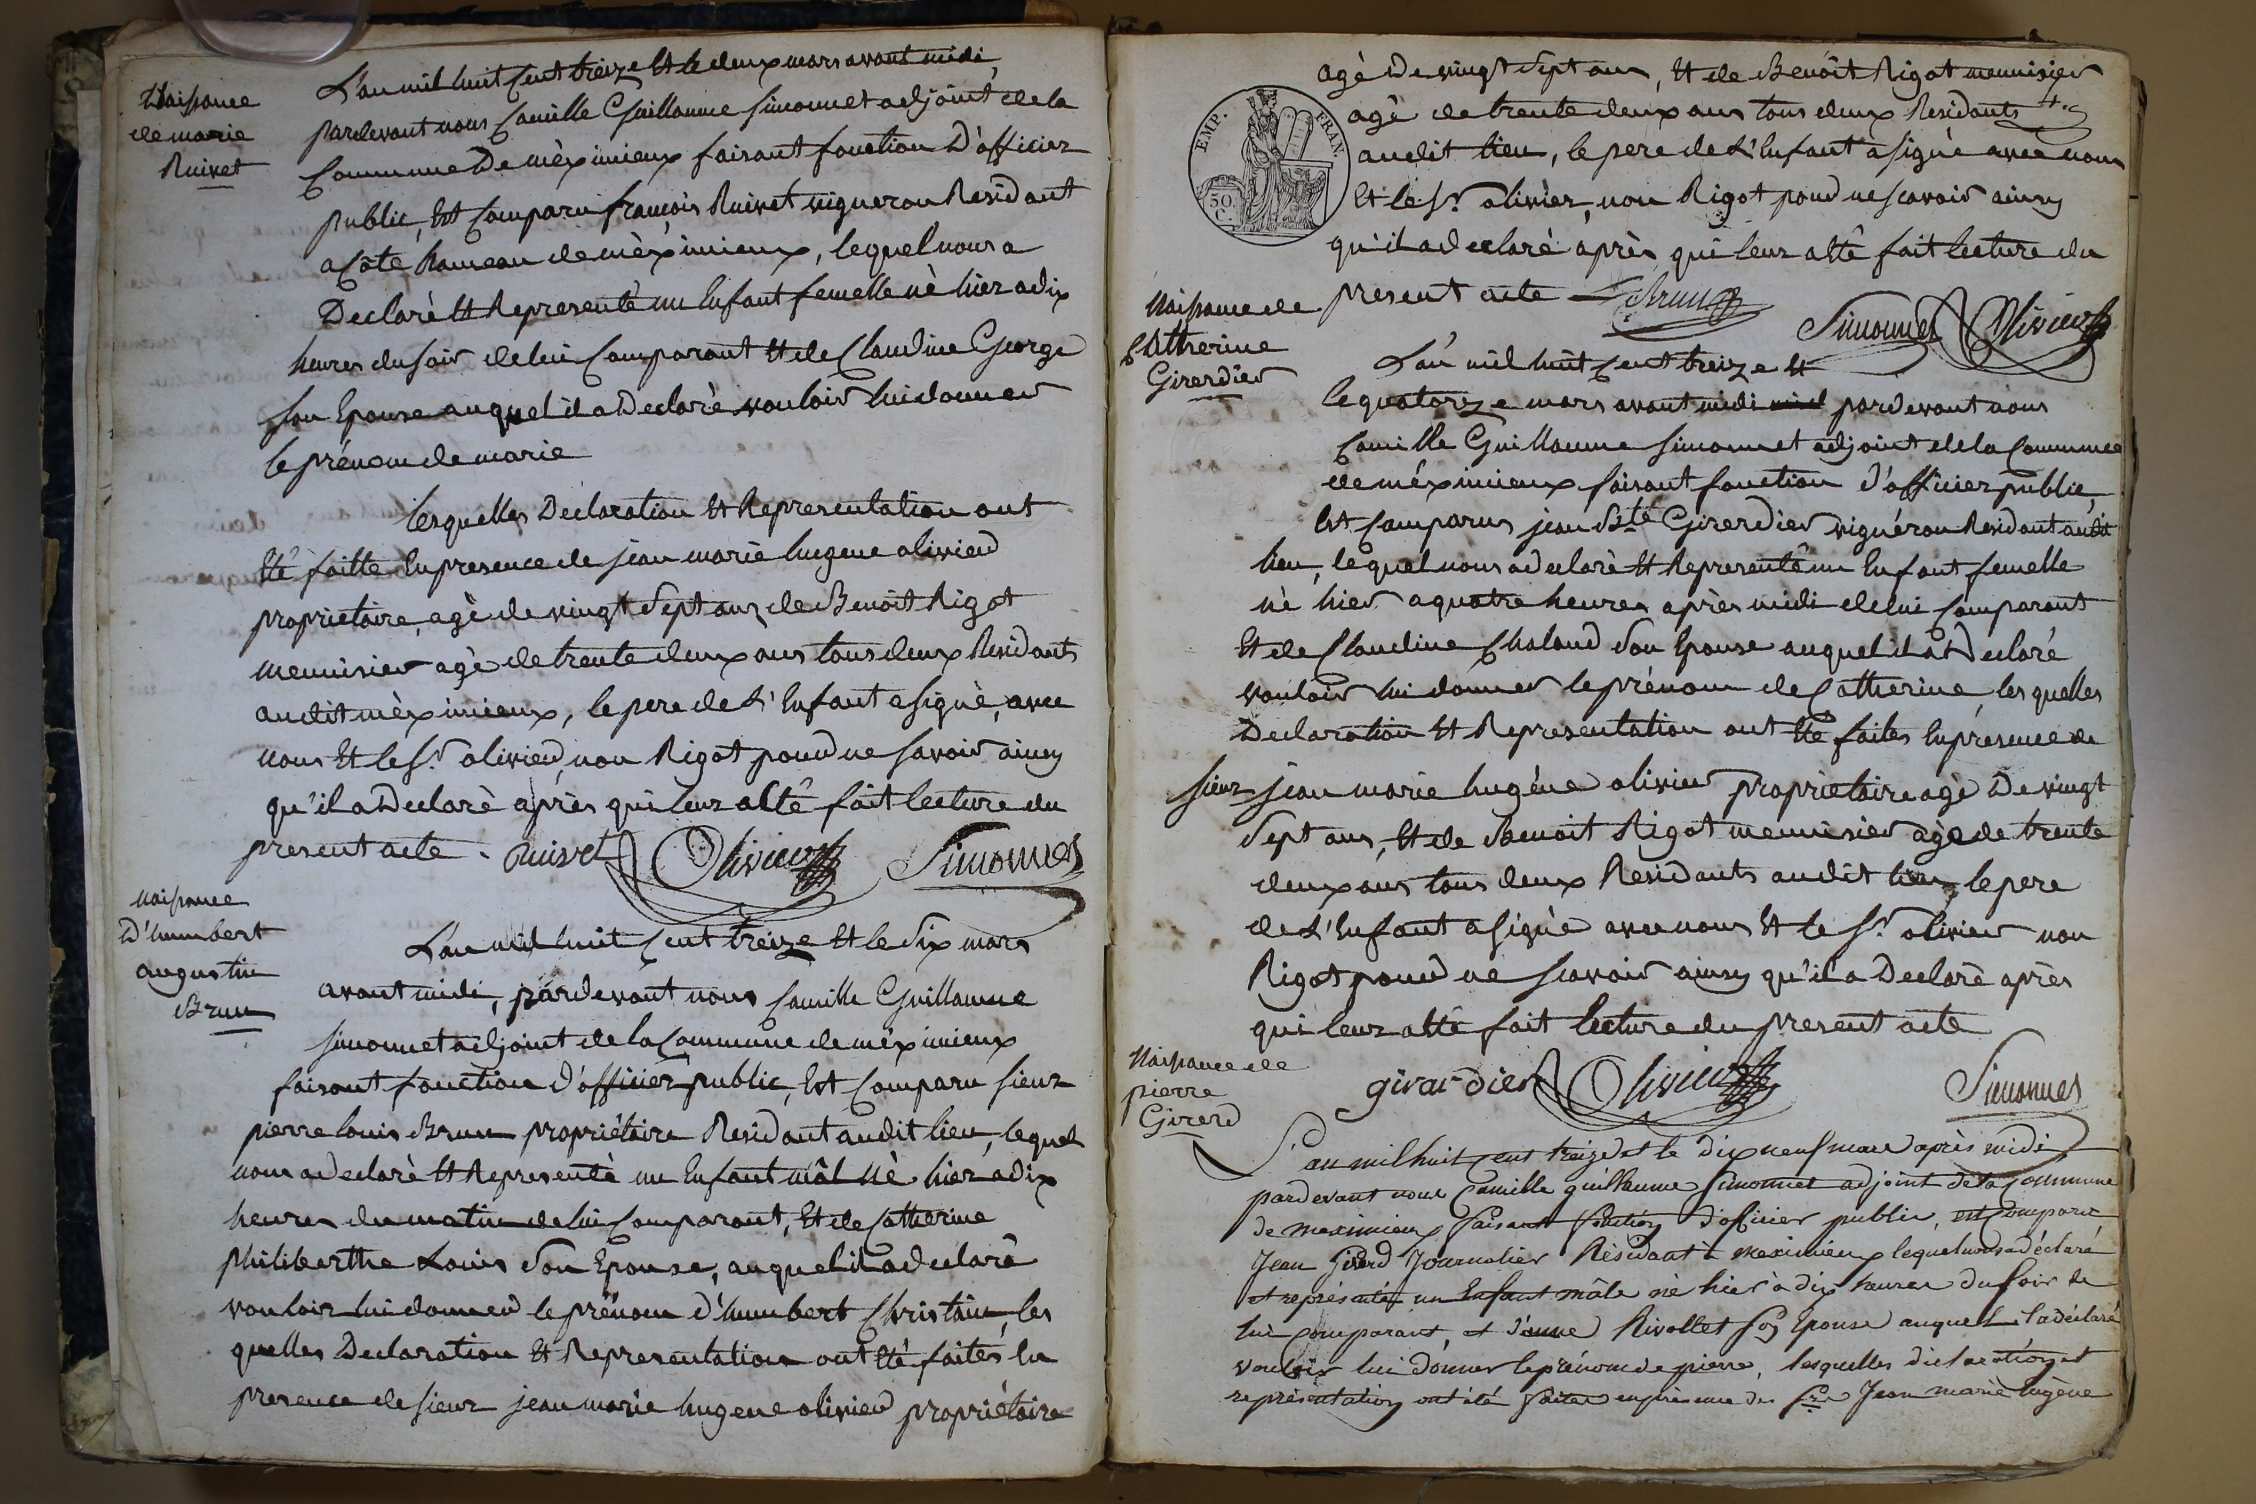 Naissance
de marie
Ruivet
L'an mil huit cent treize Et le deux mars avant midi,
pardevant nous Camille Guillaume Simonnet adjoint de la
Commune De mèximieux faisant fonction D'officier
public, Est Comparu françois Ruivet vigneron Residant
a Côte hameau de mèximieux, lequel nous a
Declaré Et Representé un Enfant femelle nè hier a dix
heures du soir de lui Comparant Et de Claudine George
son Epouse auquel il a Declarè vouloir lui donner
le prénom de marie
lesquelles Déclaration Et Representation ont
Eté faitte En presence de jean marie hugene olivier
proprietaire, agè de vingt Sept ans, de Benoit Rigot
menuisier agè de trente deux ans tous deux Residants
audit mèximieux, le pere de L'Enfant a signè, avec
nous Et le Sr. olivier, non Rigot pour ne savoir ainsy
qu'il a Declarè après qui leur a Eté fait lecture du
present acte. Ruivet Olivier Simonnet
naissance
D'humbert
augustin
Brun
L'an mil huit Cent treize Et le Six mars
avant midi, pardevant nous Camille Guillaume
Simonnet adjoint de la Commune de mèximieux
faisant fonction d'officier public, Est Comparu sieur
pierre louis Brun propriétaire Residant audit lieu, lequel
nous a declarè Et Representè un Enfant mâl nè hier a dix
heures du matin de lui Comparant, Et de Catherine
philiberthe Louis Son Epouse, auquel il a declarè
vouloir lui donner le prénom d'humbert Christain, les
quelles Declaration Et Representation ont Eté faites En
presence de sieur jean marie hugene olivier propriétaire
agè De vingt Sept ans, Et de Benoît Rigot menuisier
agè de trente deux ans tous deux Residants
audit lieu, le pere de L'Enfant a signè avec nous
Et le Sr. olivier, non Rigot pour ne scavoir ainsy
qu'il a declarè après qui leur a Eté fait lecture du
present acte Brun
Simonnet Olivier
EMP. FRAN.
50.
C.
Naissance de
Catherine
Girerdier
L'an mil huit Cent treize Et
le quatorze mars avant midi pardevant nous
Camille Guillaume Simonnet adjoint de la Commune
de méximieux faisant fonction d'officier public,
Est Comparus jean Bte Girerdier vignéron Residant audit
lieu, lequel nous a declarè Et Representé un Enfant femelle
nè hier a quatre heures après midi de lui Comparant
Et de Claudine Chaland Son Epouse auquel il a Declaré
vouloir lui donner le prénom de Catherine, les quelles
Declaration Et Representation ont Eté faites En presence de
sieur jean marie hugéne olivier proprietaire agè De vingt
Sept ans, Et de Benoit Rigot menuisier age de trente
deux ans tous deux Residants audit lieu, le pere
de L'Enfant a signè avec nous Et le Sr. olivier non
Rigot pour ne scavoir ainsy qu'il a Declarè après
qui leur a Eté fait lecture du present acte
girardier Olivier Simonnet
Naissance de
pierre
Girerd
L'an mil huit cent treize et le dix neuf mars après midi
pardevant nous Camille guillaume Simonnet adjoint de la Commune
de meximieux faisant fonction d'officier public, est Comparu
Jean Girerd Journalier Résidant à meximieux lequel nous a déclaré
et représenté un Enfant mâle né hier à dix heures du soir de
lui comparant, et d'anne Rivollet son Epouse auquel il a déclaré
vouloir lui donner le prénom de pierre, lesquelles déclaration et
représentation ont été faites en présence de Sr. Jean marie Eugène